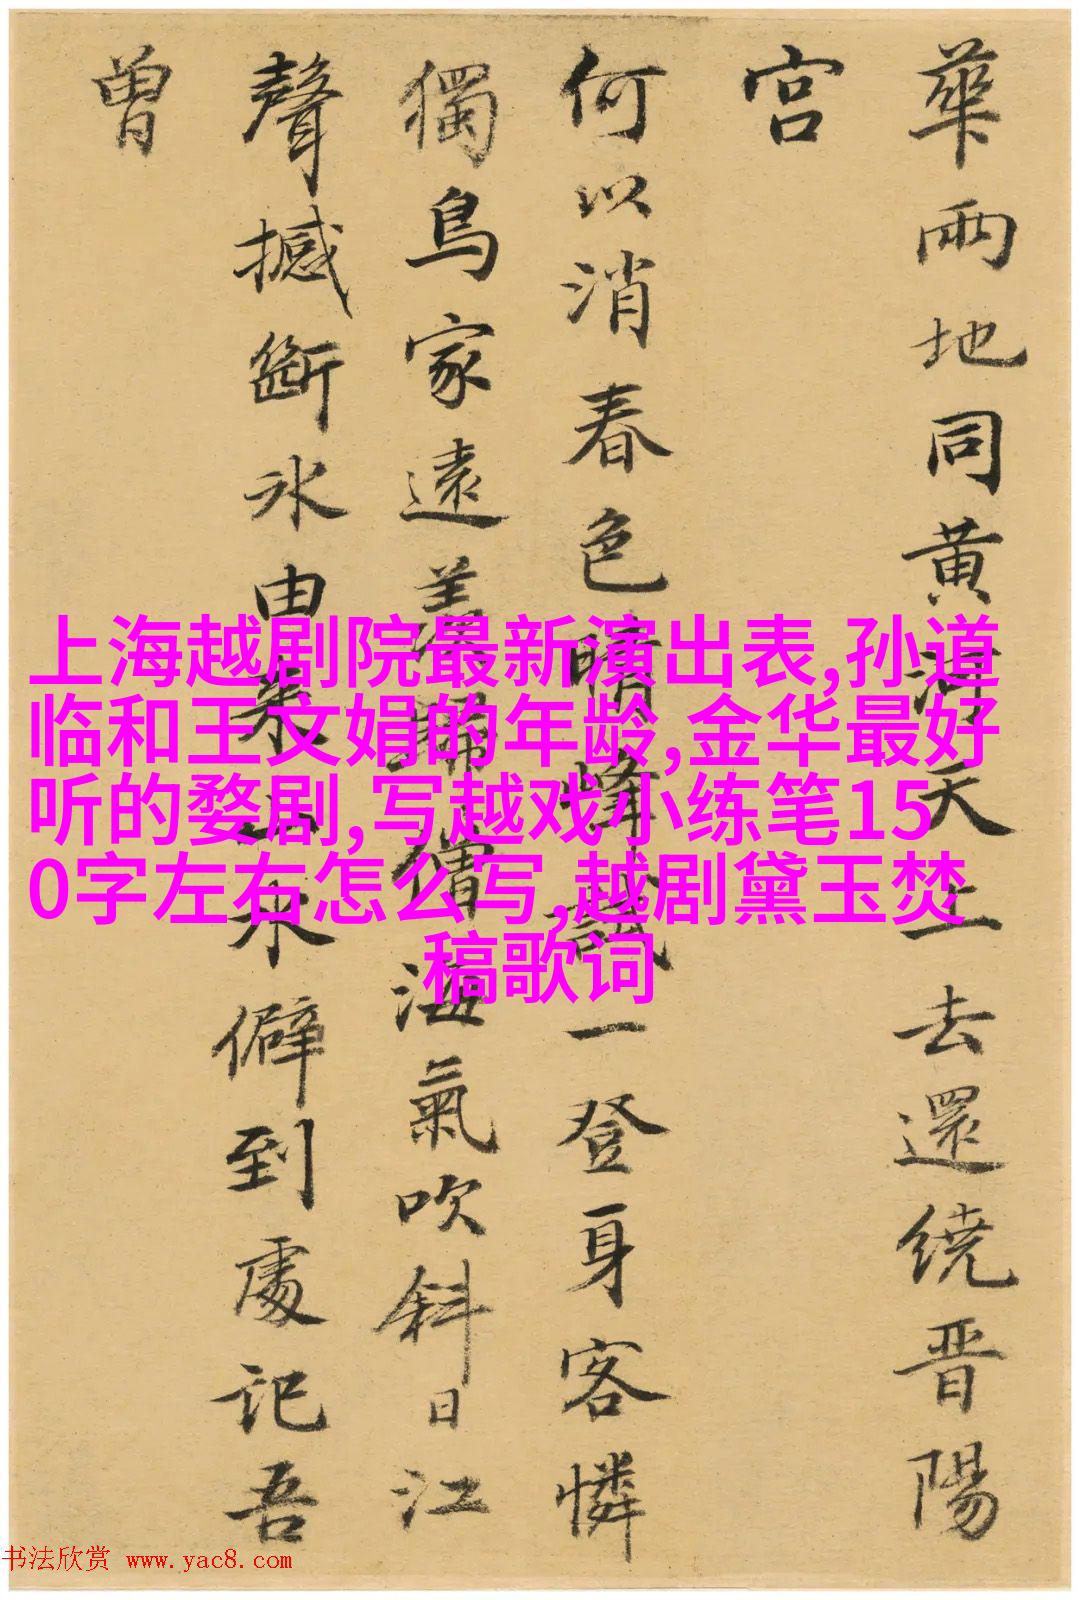 華兩地同黃河天上去還繞晋陽
宮
何以消春色晴峰試一登身客憐
獨鳥家遠羨歸僧海氣吹斜日江
聲撼斷冰由來山水僻到處記吾
曾
上海越剧院最新演出表,孙道
临和王文娟的年龄,金华最好
听的婺剧,写越戏小练笔15
0字左右怎么写,越剧黛玉焚
稿歌词
书法欣赏 www.yac8.com